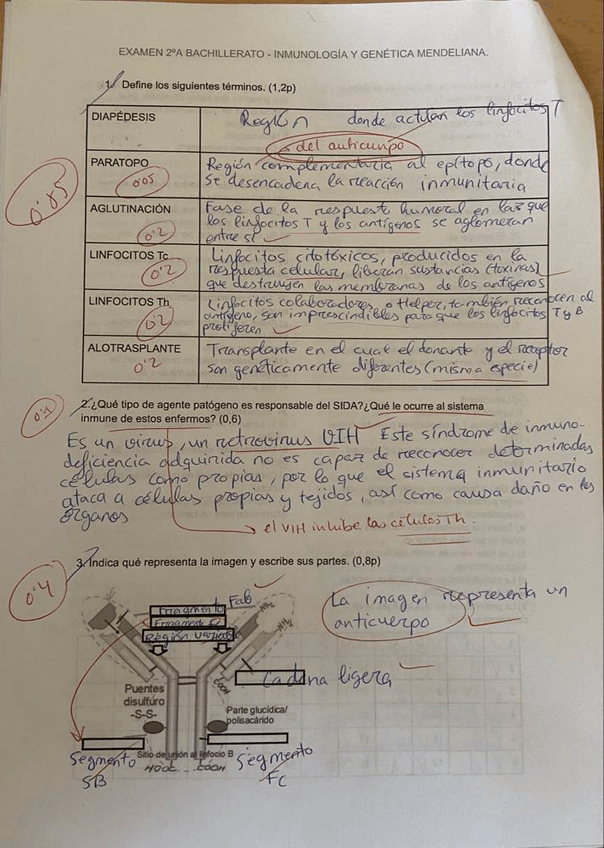 EXAMEN 2ºA BACHILLERATO - INMUNOLOGÍA Y GENÉTICA MENDELIANA.
1. Define los siguientes términos. (1,2p)
DIAPÉDESIS
Región donde actúan los linfocitos T
del anticuerpo
0'85
PARATOPO
0'05
Región complementaria al epítopo, donde
se desencadena la reacción inmunitaria
AGLUTINACIÓN
0'2
Fase de la respuesta humoral en la que
los linfocitos T y los antígenos se aglomeran
entre sí
LINFOCITOS Tc
0'2
Linfocitos citotóxicos, producidos en la
respuesta celular, liberan sustancias (toxinas)
que destruyen las membranas de los antígenos
LINFOCITOS Th
0'2
Linfocitos colaboradores o Helper, también reconocen al
antígeno, son imprescindibles para que los linfocitos T y B
proliferen
ALOTRASPLANTE
0'2
Transplante en el cual el donante y el receptor
son genéticamente diferentes (misma especie)
2.¿Qué tipo de agente patógeno es responsable del SIDA?¿Qué le ocurre al sistema
inmune de estos enfermos? (0,6)
Es un virus, un retrovirus VIH Este síndrome de inmuno-
deficiencia adquirida no es capaz de reconocer determinadas
células como propias, por lo que el sistema inmunitario
ataca a células propias y tejidos, así como causa daño en los
órganos
el VIH inhibe las células Th.
3. Indica qué representa la imagen y escribe sus partes. (0,8p)
0'4
La imagen representa un
anticuerpo
Fragmento Fab
Región variable
NH₂
NH₂
COOH
Cadena ligera
Puentes
disulfuro
-S-S-
Parte glucídica/
polisacárido
Sitio de unión al linfocio B
Segmento
SB
HOOC COOH
Segmento
Fc